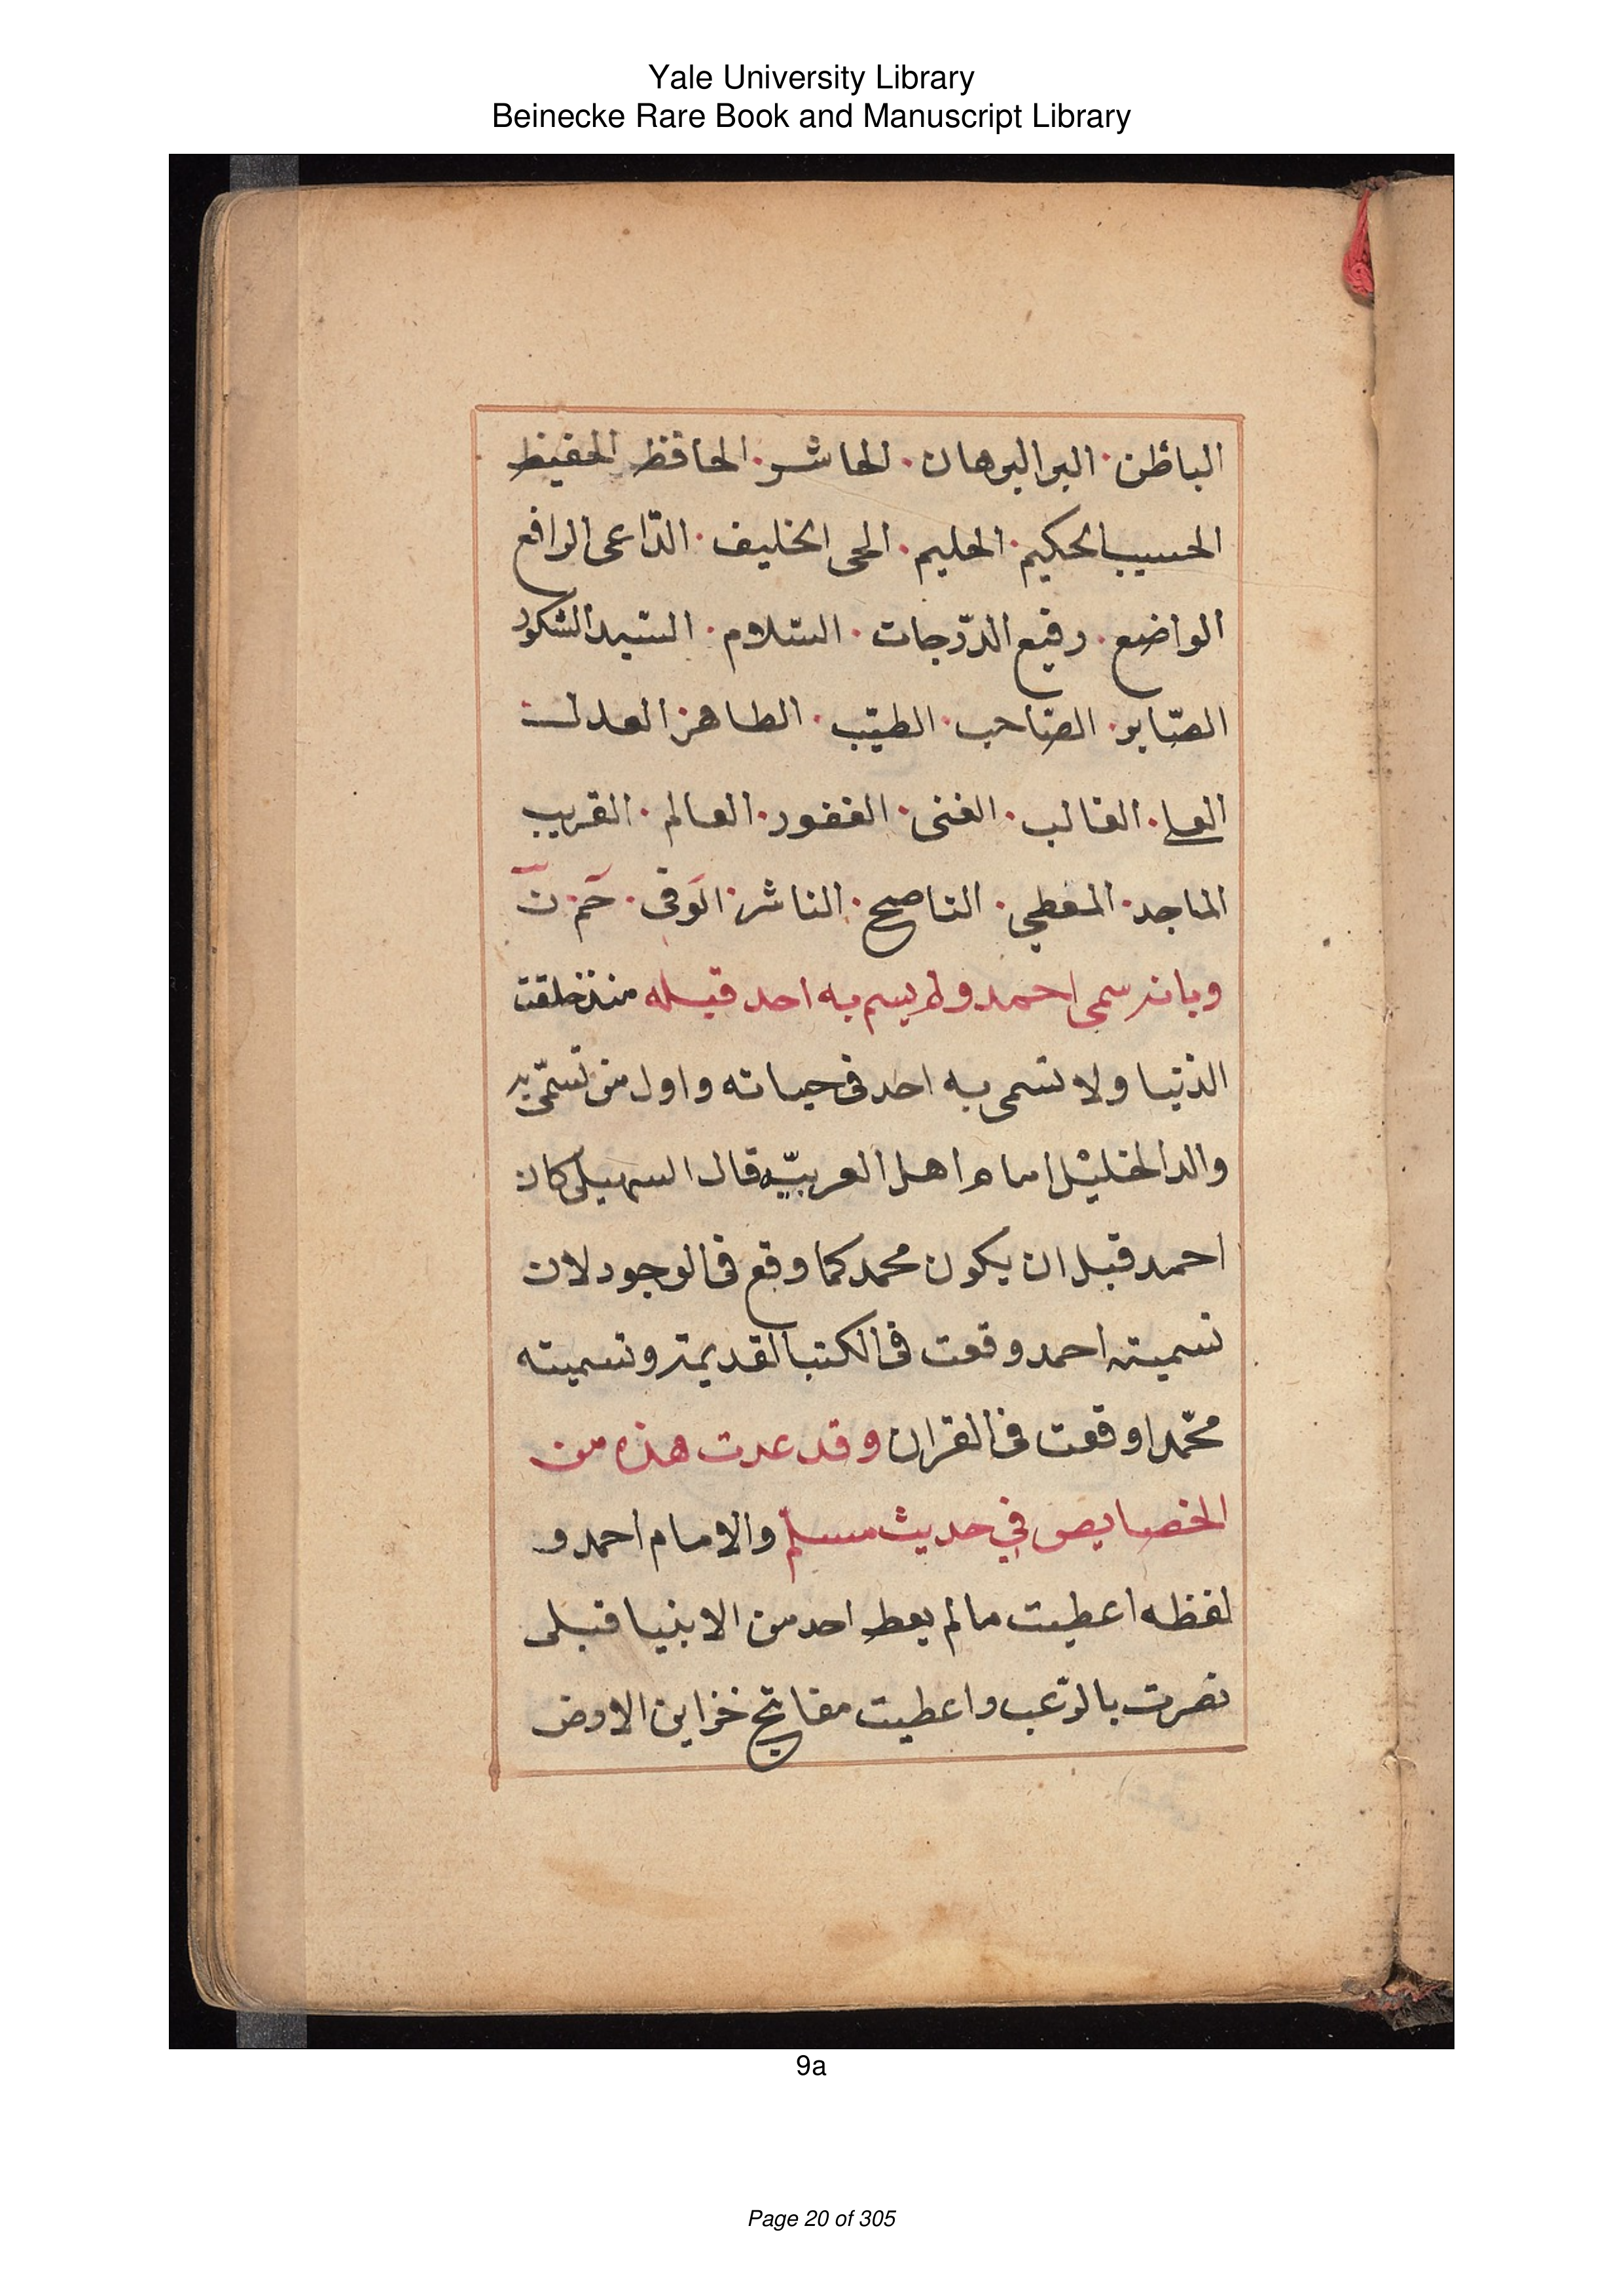 Yale University Library
Beinecke Rare Book and Manuscript Library
الباطن · البر البرهان · الحاشر · الحافظ الحفيظ
الحسيب الحكيم · الحليم · الحى الخليف · الدّاعى الرافع
الواضع · رفيع الدّرجات · السّلام · السّيد الشكور
الصّابر · الصّاحب · الطيّب · الطاهر العدل
العلى · الغالب · الغنى · الغفور · العالم · القريب
الماجد · المعطي · الناصح · الناشر · الوفى · حم · ن
وبانه سمى احمد ولم يسم به احد قبله منذ خلقت
الدّنيا ولا تسمى به احد فى حياته واول من تسمّى به
والد الخليل امام اهل العربيّه قال السهيلى كان
احمد قبل ان يكون محمد كما وقع فى الوجود لان
تسميته احمد وقعت فى الكتب القديمة وتسميته
محمّدا وقعت فى القران وقد عدت هذه من
الخصايص في حديث مسلم والامام احمد و
لفظه اعطيت مالم يعط احد من الانبيا قبلى
نصرت بالرّعب واعطيت مفاتيح خزاين الارض
9a
Page 20 of 305